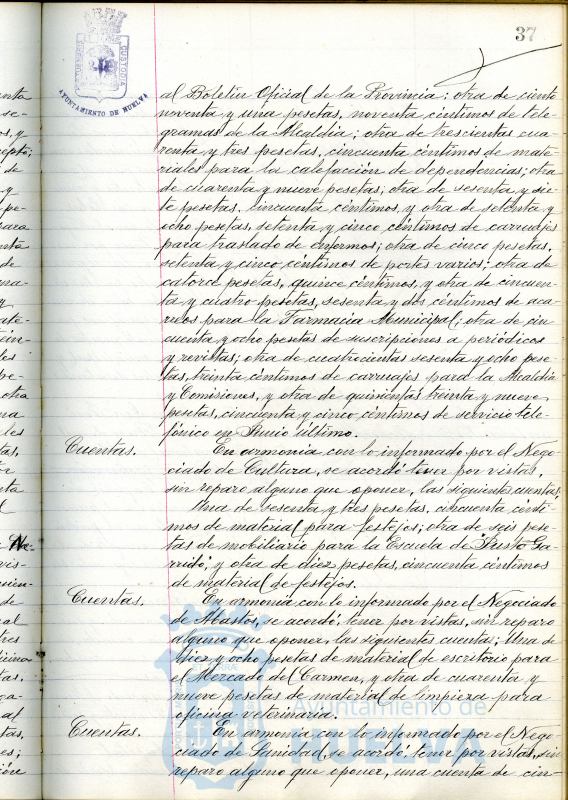 37
AYUNTAMIENTO DE HUELVA
al Boletín Oficial de la Provincia; otra de ciento
noventa y una pesetas, noventa céntimos de tele-
gramas de la Alcaldía; otra de trescientas cua-
renta y tres pesetas, cincuenta céntimos de mate-
riales para la calefacción de dependencias; otra
de cuarenta y nueve pesetas; otra de sesenta y sie-
te pesetas, cincuenta céntimos, y otra de setenta y
ocho pesetas, setenta y cinco céntimos de carruajes
para traslado de enfermos; otra de cinco pesetas,
setenta y cinco céntimos de portes varios; otra de
catorce pesetas, quince céntimos, y otra de cincuen-
ta y cuatro pesetas, sesenta y dos céntimos de aca-
rreos para la Farmacia Municipal; otra de cin
cuenta y ocho pesetas de suscripciones a periódicos
y revistas; otra de cuatrocientas sesenta y ocho pese
tas, treinta céntimos de carruajes para la Alcaldía
y Comisiones, y otra de quinientas treinta y nueve
pesetas, cincuenta y cinco céntimos de servicio tele-
fónico en Junio último.
Cuentas. En armonía con lo informado por el Nego-
ciado de Cultura, se acordó tener por vistas,
sin reparo alguno que oponer, las siguientes cuentas:
Una de sesenta y tres pesetas, cincuenta cénti-
mos de material para festejos; otra de seis pese-
tas de mobiliario para la Escuela de Justo Ga-
rrido, y otra de diez pesetas, cincuenta céntimos
de material de festejos.
Cuentas. En armonía con lo informado por el Negociado
de Abastos, se acordó, tener por vistas, sin reparo
alguno que oponer, las siguientes cuentas; Una de
diez y ocho pesetas de material de escritorio para
el Mercado del Carmen, y otra de cuarenta y
nueve pesetas de material de limpieza para
oficina veterinaria.
Cuentas. En armonía con lo informado por el Nego-
ciado de Sanidad, se acordó, tener por vistas, sin
reparo alguno que oponer, una cuenta de cin-
Ayuntamiento de